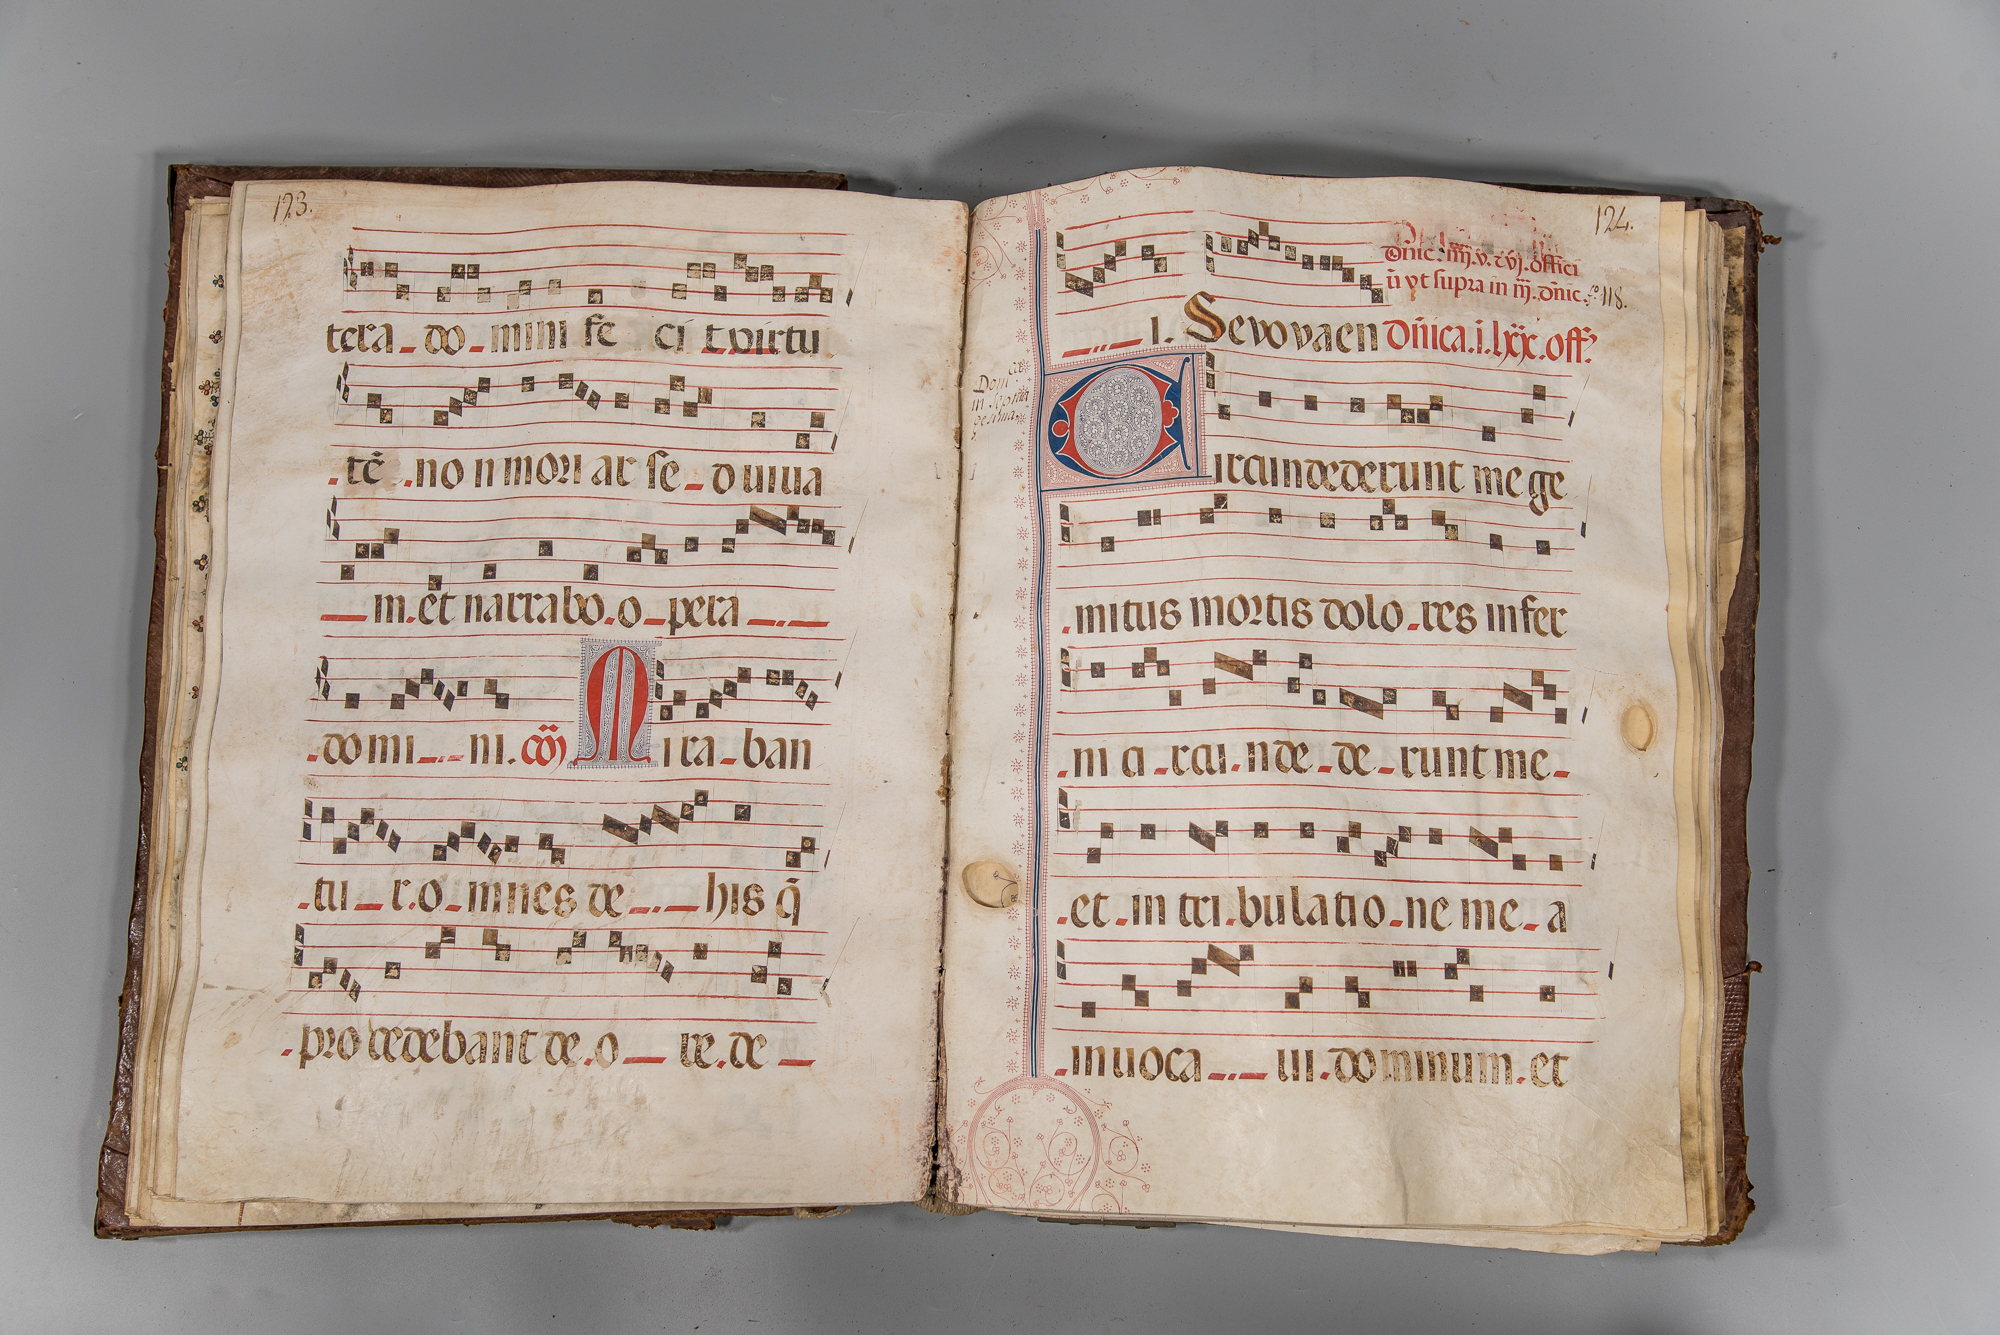 123.
tera do mini fe ci t virtu
tē. no n mori ar se d viva
m. et narrabo. o pera
domi ni. cōi Mira ban
tu r. o mnes de his q̄
pro cedebant de. o re. de
124.
dn̄ic. iiij. v. et vj. offici
ū vt supra in iij. dn̄ic. fo. 118.
1. Sevovaen dn̄ica. i. lxx. off.
Domca
in Septua
gesima.
Circundederunt me ge
mitus mortis dolo res infer
ni ci rcu nde de runt me
et in tri bulatio ne me a
invoca vi. dominum. et